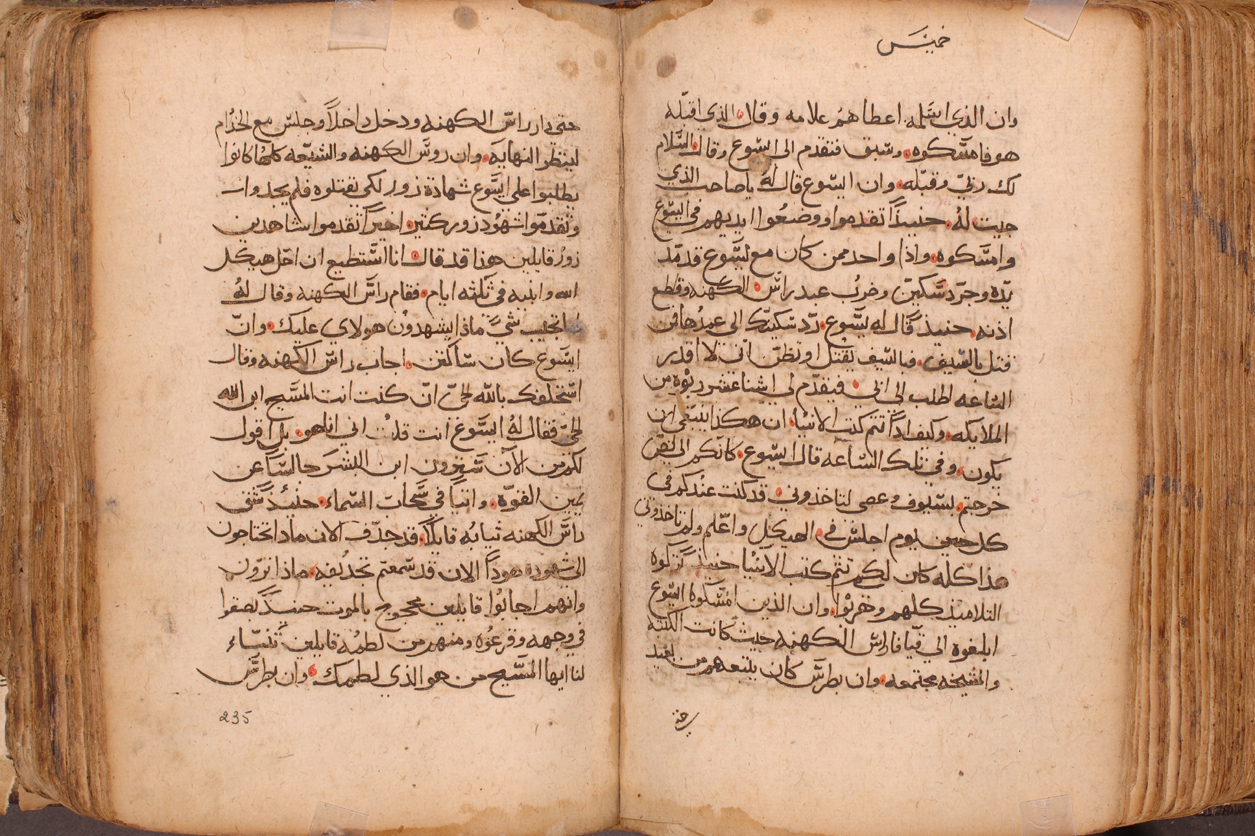 خميس
وان الذي اسلمه اعطاهم علامه وقال الذي اقبله
هو فامسكوه وسبق فتقدم الى ايسوع وقال السلام
لك ربي وقبله وان ايسوع قال له ياصاحب الذي
جيت له حنيدا تقدموا ووضعوا ايديهم في ايسوع
وامسكوه واذا واحد ممن كان مع ايسوع قد مد
يده وجرد سكين وضرب عبد راس الكهنه وقطع
اذنه حنيذ قال له يسوع رد سكينك الى غمدها فمن
قتل بالسيف فبالسيف يقتل او تظن اني لا اقدر
الساعه اطلب الى ابي فيقدم لى اثنا عشر ربوة من
الملايكه وكيف اذا تتم كتب الانبيا ان هكذا ينبغي ان
يكون وفي تلك الساعه قال ايسوع كانكم الى لص
خرجتم بسيوف وعصي لتاخذوني قد كنت عندكم في
كل حين يوم اجلس في الهيكل واعلم ولم تاخذوني
هذا كله كان لكي تتم كتب الانبيا حنيذ تركوه
التلاميذ كلهم وهربوا وان الذين امسكوا ايسوع
ابلغوه الى قيافا راس الكهنه حيث كانت الكتبه
والمشيخه مجتمعه وان بطرس كان يتبعهم من بعيد
حتى دار راس الكهنه ودخل داخلا وجلس مع الخدام
لينظر النهايه وان روس الكهنه والشيعه كلها كانوا
يطلبوا على ايسوع شهادة زور لكي يقتلوه فلم يجدوا
وتقدموا شهود زور كتير اخيرا تقدموا شاهدين
زور قايلين هذا قد قال انا استطيع ان احل هيكل
الله وابنيه في ثلثه ايام فقام راس الكهنه وقال له
اتجيب شي ماذا يشهدون هولاي عليك وان
ايسوع كان ساكت اجاب راس الكهنه وقال
استحلفك بالله الحي ان كنت انت المسيح ابن الله
الحي فقال له ايسوع انت قلت اني انا هو بل قول
لكم من الآن سترون ابن البشر جالسا عن
يمين القوة واتيا في سحاب السماء حنيذ شق
راس الكهنه ثيابه قايلا قد جدف الان ماذا تحتاجون
الى شهود هوذا الان قد سمعتم تجديفه ماذا ترون
وانهم اجابوا قايلين محجوج بالموت حنيذ بصقوا
في وجهه وقرعوه ومنهم من لطمه قايلين تنباء
لنا ايها المسيح من هو الذي لطمك وان بطرس
235